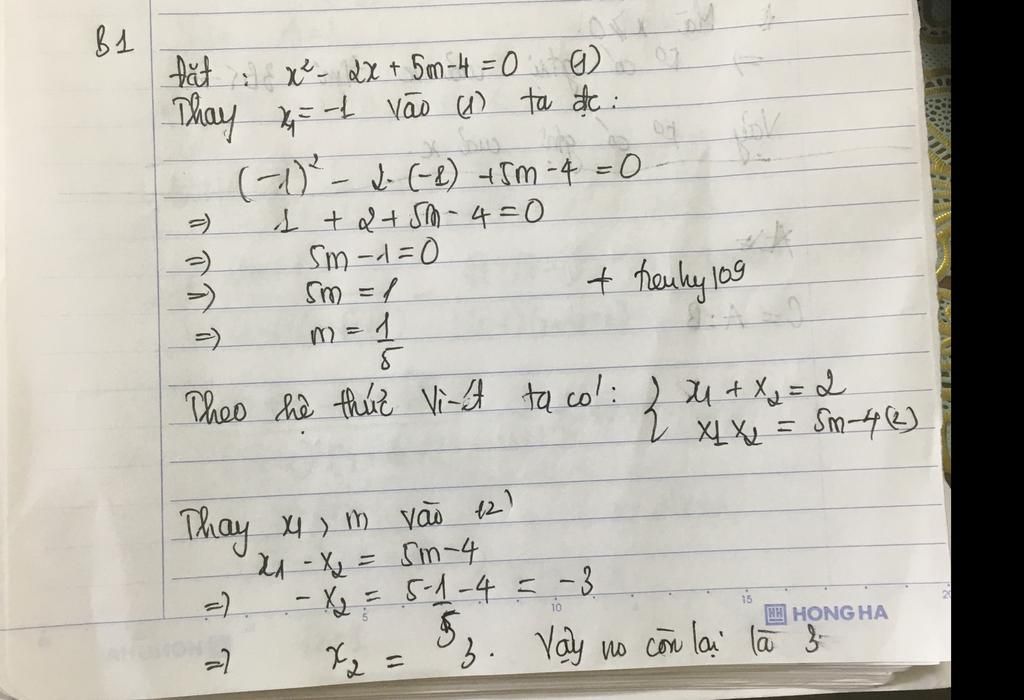 B1
Đặt : x² - 2x + 5m - 4 = 0 (1)
Thay x₁ = -1 vào (1) ta đc :
(-1)² - 2. (-1) + 5m - 4 = 0
=> 1 + 2 + 5m - 4 = 0
=> 5m - 1 = 0
=> 5m = 1
+ trenhy109
=> m = 1/5
Theo hệ thức Vi-ét ta có : { x₁ + x₂ = 2
x₁ x₂ = 5m - 4 (2)
Thay x₁ , m vào (2)
x₁ - x₂ = 5m - 4
=> - x₂ = 5 - 1/5 - 4 = -3
5 10 15 20
HONG HA
=> x₂ = 3. Vậy no còn lại là 3